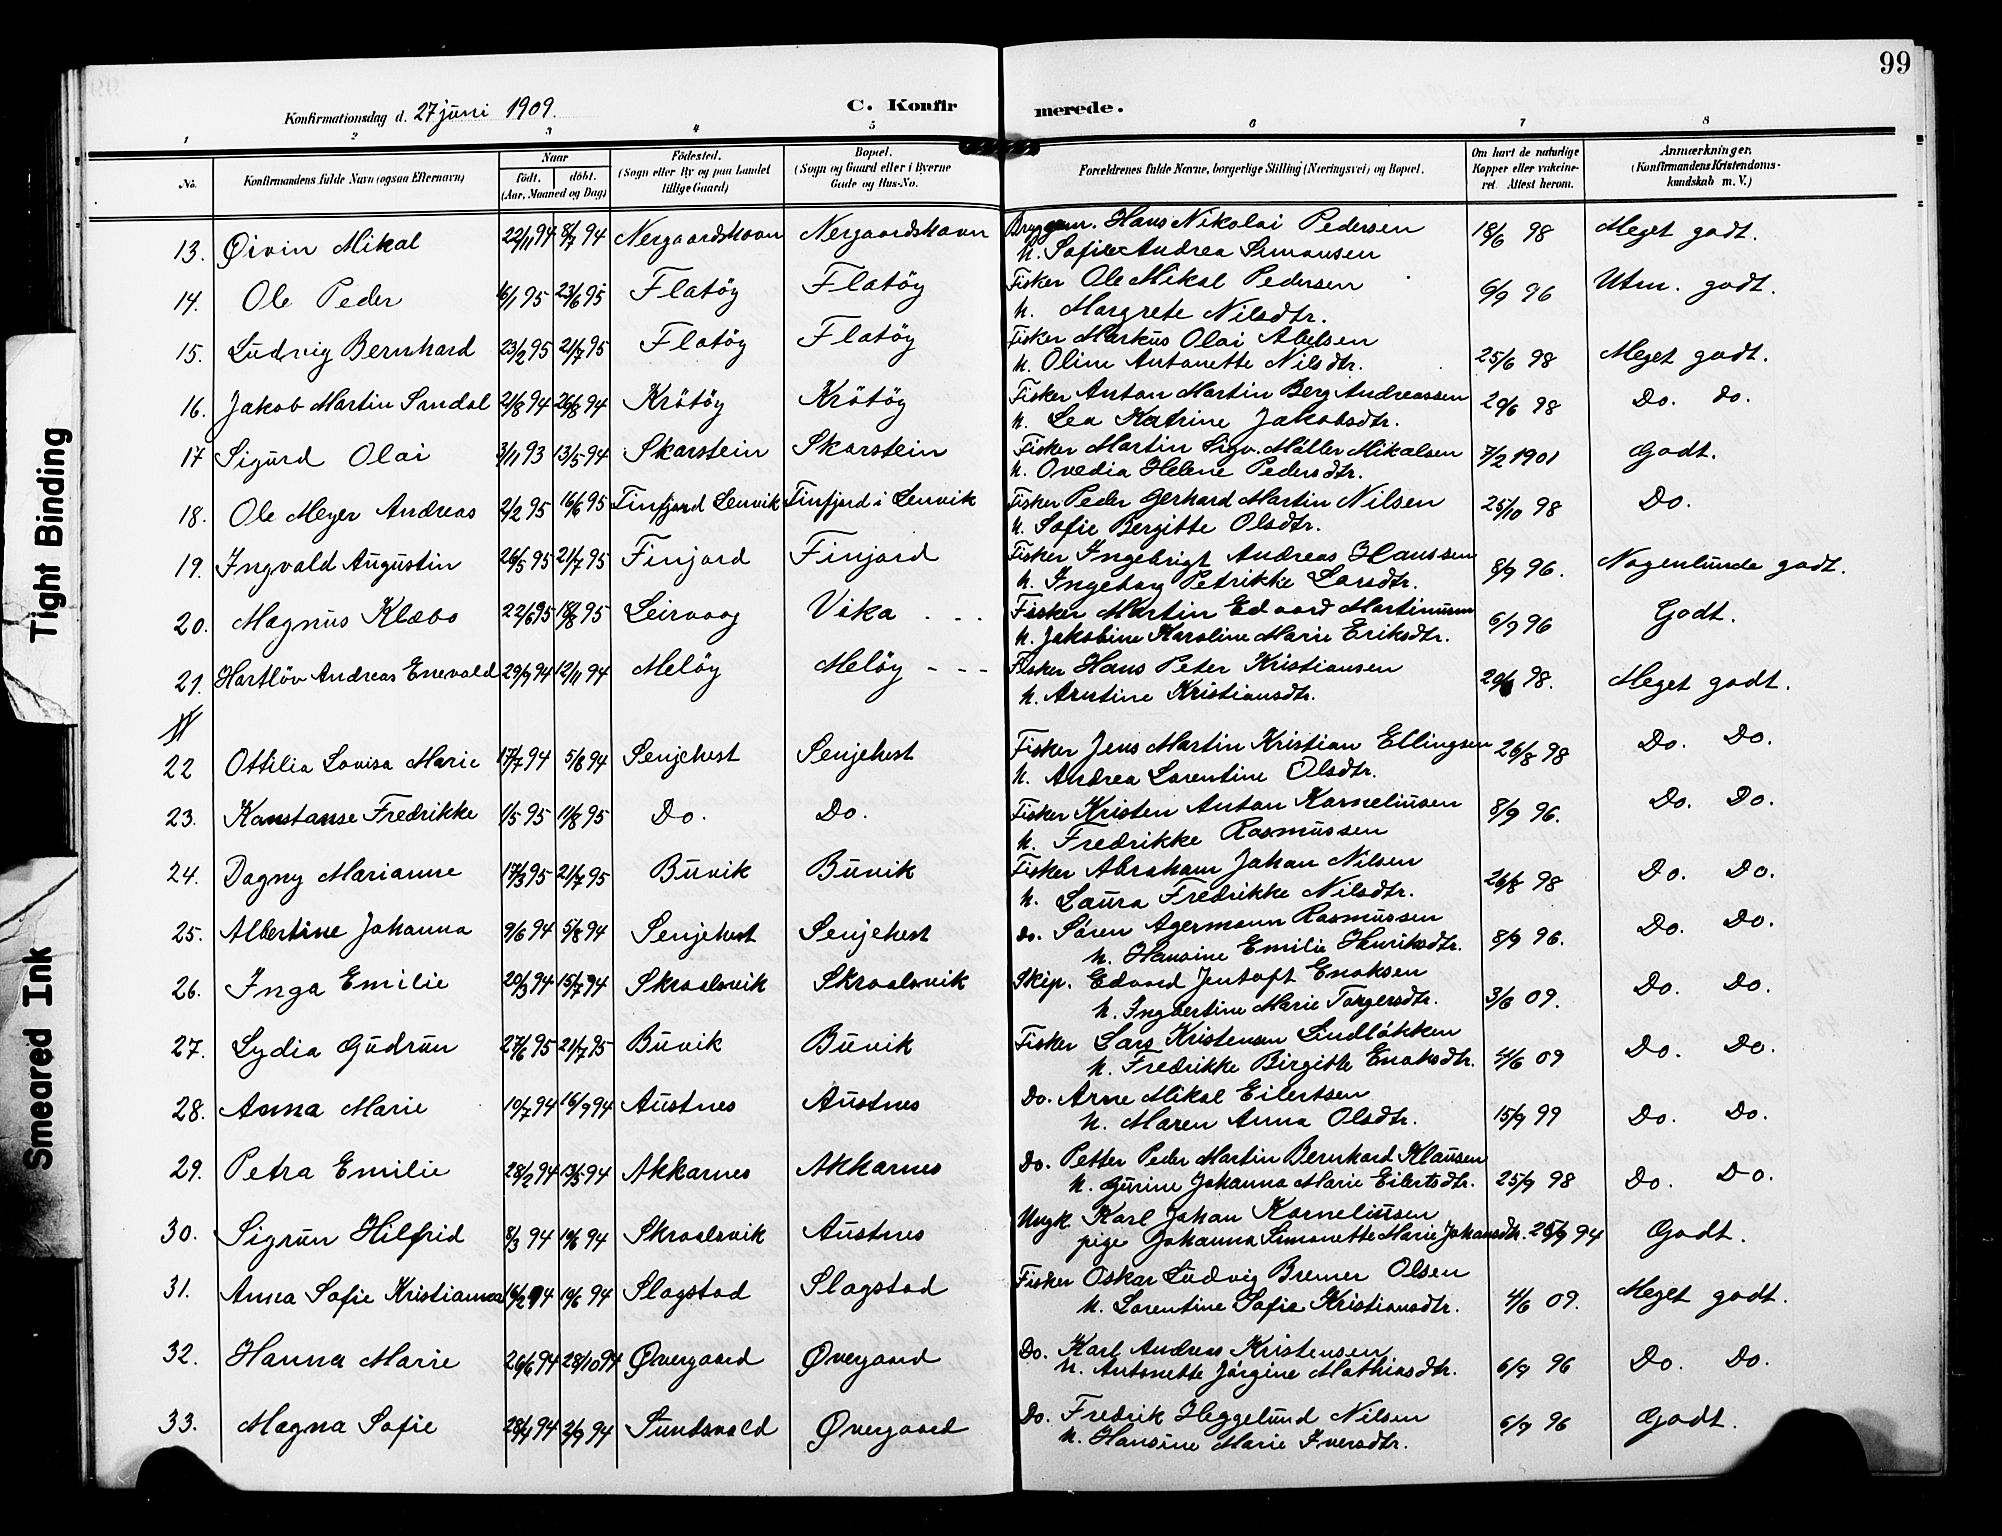 99
Konfirmationsdag d. 27 juni 1909. C. Konfirmerede.
1 2 3 4 5 6 7 8
No. Konfirmandens fulde Navn (ogsaa Efternavn) Naar født. døbt. (Aar, Maaned og Dag) Fødested. (Sogn eller By og paa Landet tillige Gaard) Bopæl. (Sogn og Gaard eller i Byerne Gade og Hus-No. Forældrenes fulde Navne, borgerlige Stilling (Næringsvei) og Bopæl. Om havt de naturlige Kopper eller vakcineret. Attest herom. Anmærkninger. (Konfirmandens Kristendomskundskab m. V.)
13. Øivin Mikal 22/11 94 8/7 94 Nergaardshavn Nergaardshavn Hans Nikolai Pedersen 18/6 98 Meget godt.
h. Sofie Andrea Simonsen
14. Ole Peder 16/1 95 23/6 95 Flatöy Flatöy Fisker Ole Mikal Pedersen 6/9 96 Utm. godt.
h. Margrete Nilsdtr.
15. Ludvig Bernhard 23/2 95 21/7 95 Flatöy Flatöy Fisker Markus Olai Abelsen 25/6 98 Meget godt.
h. Oline Antonette Nilsdtr.
16. Jakob Martin Sandal 21/8 94 26/8 94 Krötöy Krötöy Fisker Anton Martin Berg Andreassen 20/6 98 Do. do.
h. Lea Katrine Jakobsdtr.
17 Sigurd Olai 3/11 93 13/5 94 Skarstein Skarstein Fisker Martin Sigv. Möller Mikalsen 7/2 1901 Godt.
h. Ovedia Helene Pedersdtr.
18. Ole Meyer Andreas 2/2 95 16/6 95 Finfjord Lenvik Finfjord i Lenvik Fisker Peder Gerhard Martin Nilsen 25/10 98 Do.
h. Sofie Bergitte Olsdtr.
19. Ingvald Augustin 26/5 95 21/7 95 Finjord Finjord Fisker Ingebrigt Andreas Hanssen 8/9 96. Nogenlunde godt.
h. Ingeborg Petrikke Larsdtr.
20. Magnus Klæbo 22/6 95 18/8 95 Leirvaag Vika . . . Fisker Martin Edvard Martinussen 6/9 96 Godt.
h. Jakobine Karoline Marie Eriksdtr.
21. Hartlöv Andreas Enevald 29/9 94 12/11 94 Melöy Melöy - - - Fisker Hans Peter Kristiansen 20/6 98. Meget godt.
h. Arntine Kristiansdtr.
22 Ottilia Lovisa Marie 17/7 94 5/8 94 Senjehest Senjehest Fisker Jens Martin Kristian Ellingsen 26/8 98 Do. Do.
h. Andrea Lorentine Olsdtr.
23. Konstanse Fredrikke 1/5 95 11/8 95 Do. Do. Fisker Kristen Anton Korneliussen 8/9 96. Do. Do.
h. Fredrikke Rasmussen
24. Dagny Marianne 17/3 95 21/7 95 Buvik Buvik Fisker Abraham Johan Nilsen 26/8 98 Do. Do.
h. Laura Fredrikke Nilsdtr.
25. Albertine Johanna 9/6 94 5/8 94 Senjehest Senjehest Do. Søren Agermann Rasmussen 8/9 96. Do. Do.
h. Hansine Emilie Henriksdtr.
26. Inga Emilie 20/3 94 15/7 94 Skrolsvik Skrolsvik Skip. Edvard Jentoft Enoksen 3/6 09. Do. Do.
h. Ingbertine Marie Torgersdtr.
27. Lydia Gudrun 27/6 95 21/7 95 Buvik Buvik Fisker Lars Kristensen Lindløkken 4/6 09 Do. Do.
h. Fredrikke Birgitte Enoksdtr.
28. Anna Marie 10/7 94 16/9 94 Austnes Austnes Do. Arne Mikal Eilertsen 15/9 99 Do. Do.
h. Maren Anna Olsdtr.
29. Petra Emilie 28/2 94 13/5 94 Akkarnes Akkarnes Do. Petter Peder Martin Bernhard Klausen 25/9 98 Do. Do.
h. Gurine Johanna Marie Eilertsdtr.
30. Sigrun Hilfrid 8/3 94 10/6 94 Skrolsvik Austnes Ungk Karl Johan Korneliussen 25/9 94 Godt.
pige Johanna Simonette Marie Johansdtr.
31. Anna Sofie Kristianna 16/2 94 10/6 94 Slagstad Slagstad Fisker Oskar Ludvig Bremer Olsen 4/6 09. Meget godt.
h. Lorentine Sofie Kristiansdtr.
32. Hanna Marie 26/6 94 28/10 94 Øvergaard Øvergaard Do. Karl Andreas Kristensen 6/9 96 Do. Do.
h. Antonette Jörgine Mathiasdtr.
33. Magna Sofie 28/4 94 2/9 94 Sundsvold Øvergaard Do. Fredrik Heggelund Nilsen 6/9 96 Godt.
h. Hansine Marie Iversdtr.
Tight Binding
Smeared Ink